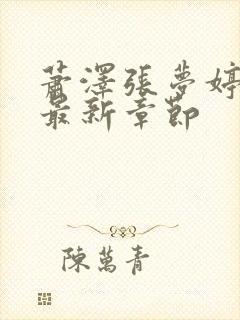 蕭澤張夢婷
最新章節
陳萬青